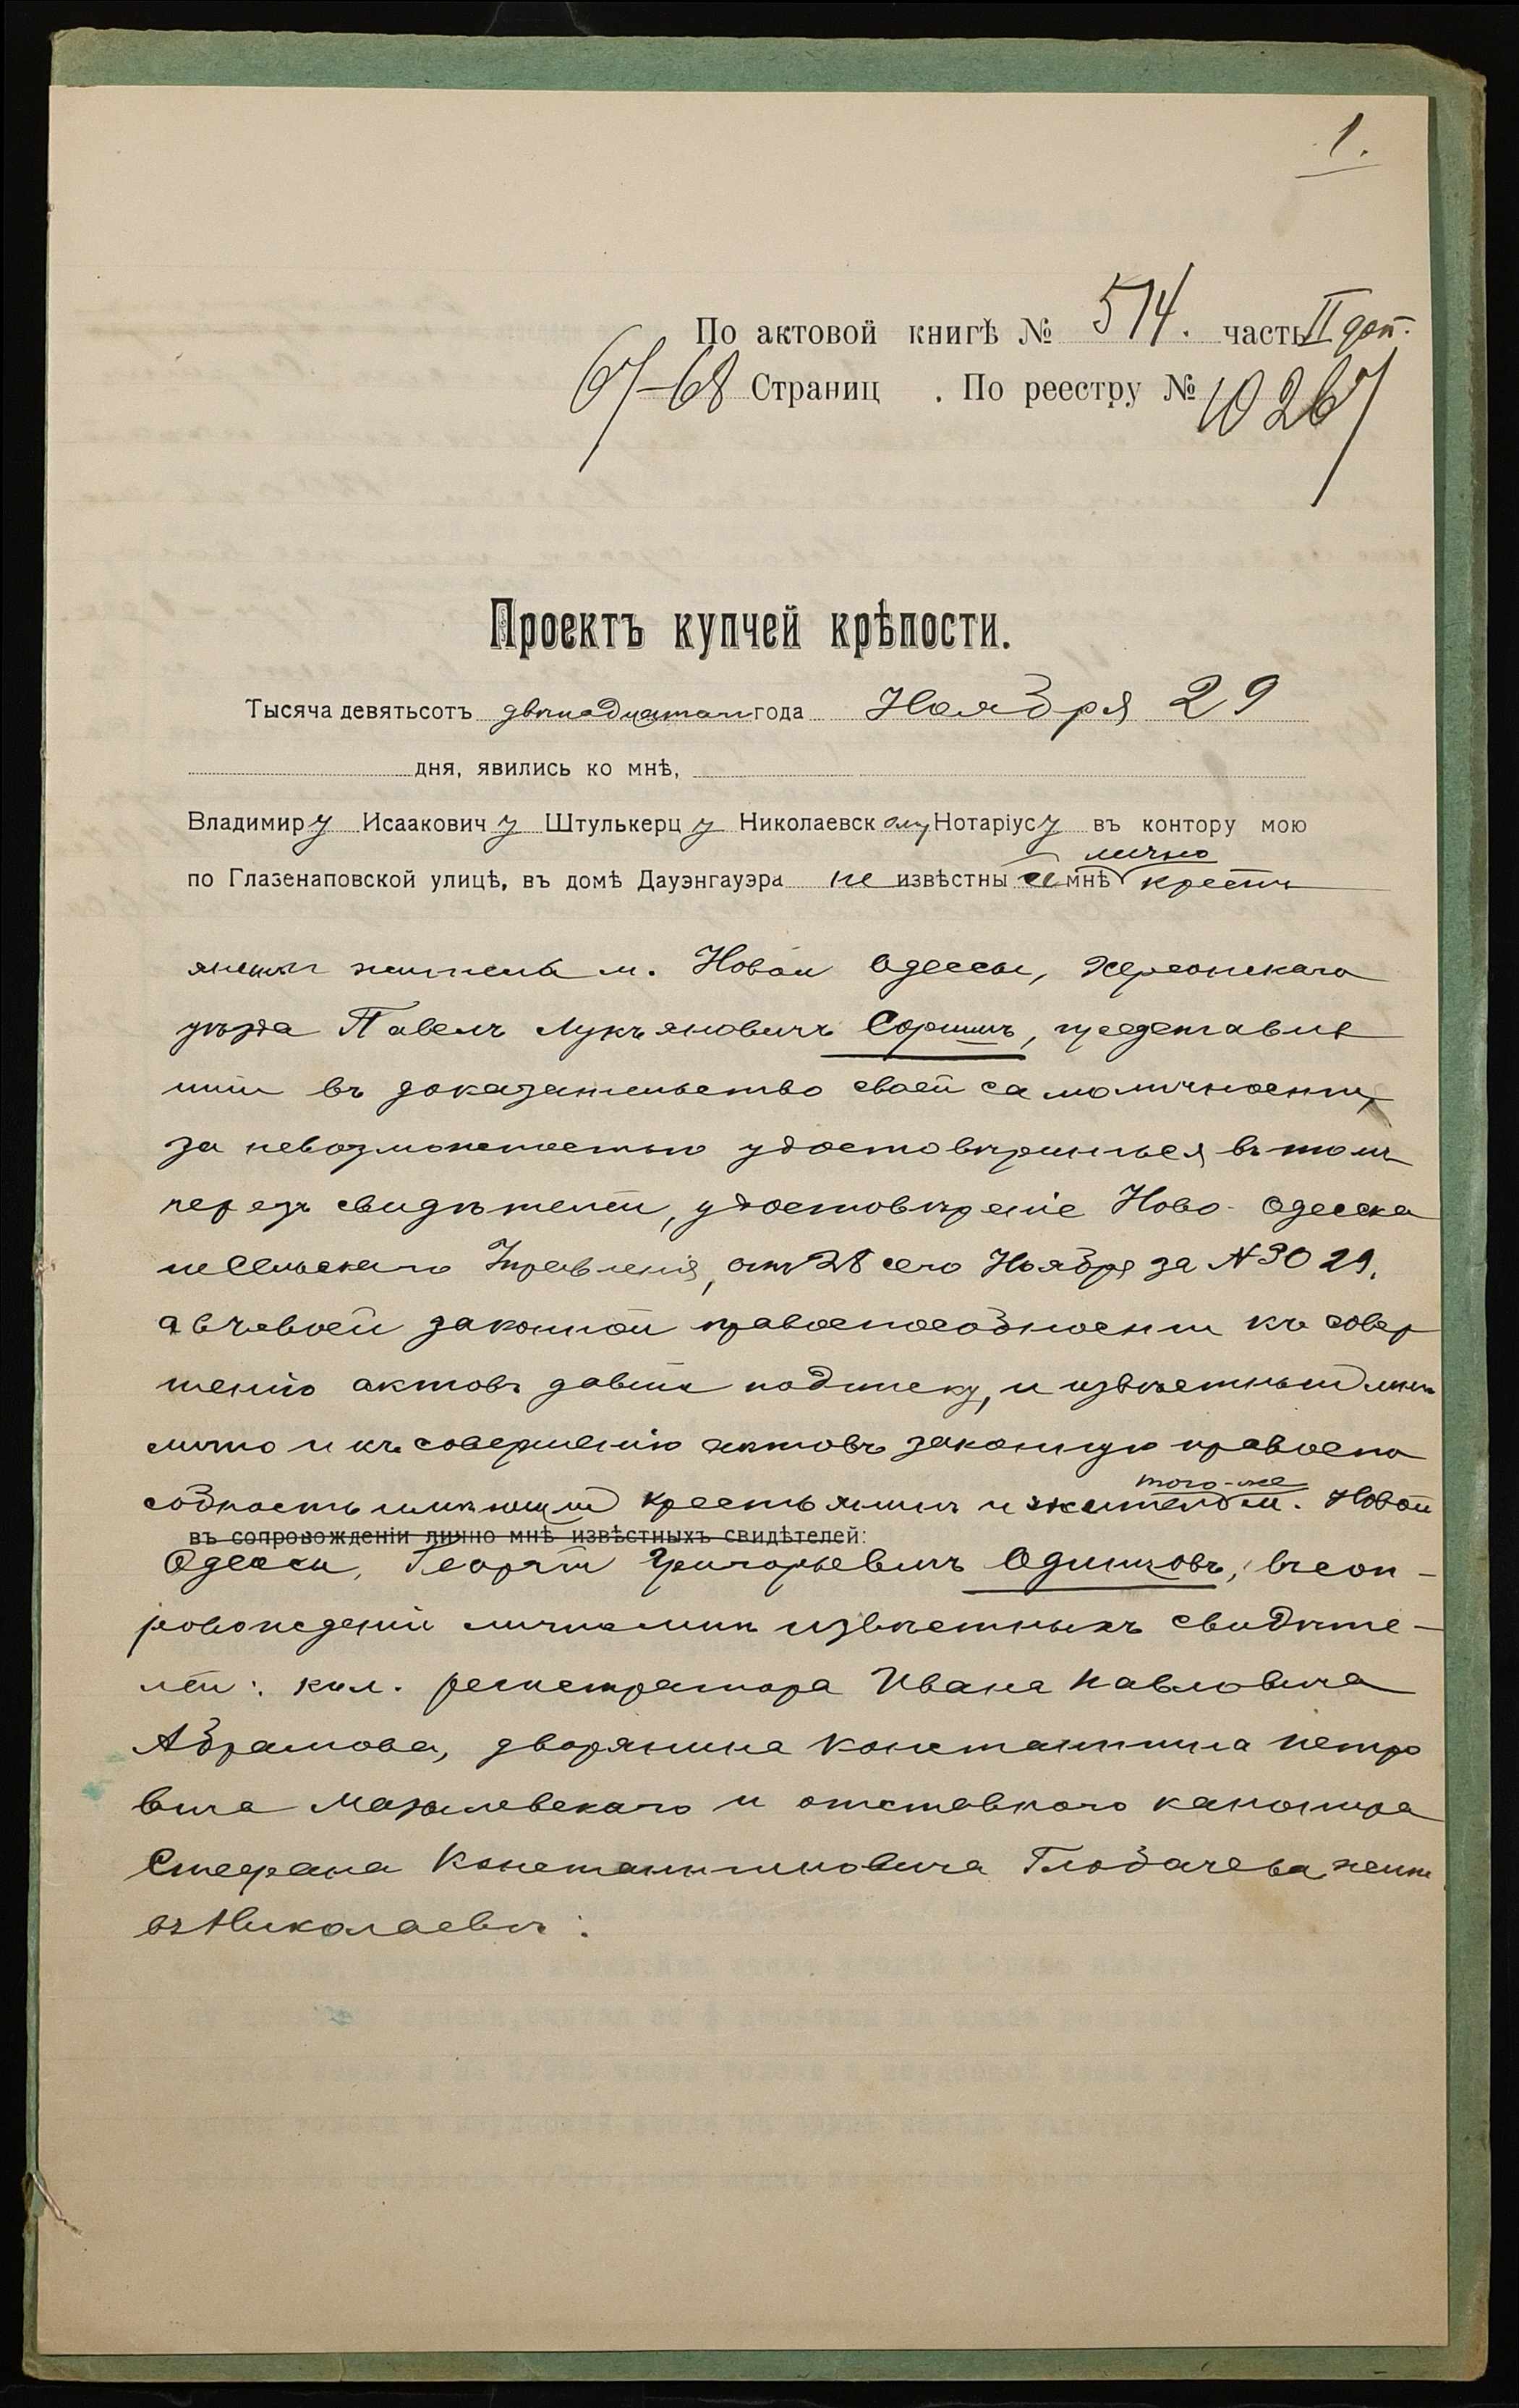 1.
По актовой книгѣ № 514. часть II доп.
67–68 Страниц . По реестру № 10267
Проектъ купчей крѣпости.
Тысяча девятьсотъ двѣнадцатаго года Ноября 29
дня, явились ко мнѣ,
Владимиру Исааковичу Штулькерцу Николаевскому Нотаріусу въ контору мою
лично
по Глазенаповской улицѣ, въ домѣ Дауэнгауэра не извѣстный мнѣ крестъ
янинъ житель м. Новой Одессы, Херсонскаго
уѣзда Павелъ Лукъяновичъ Соринъ, представив
шій въ доказательство своей самоличности,
за невозможностью удостовѣриться въ томъ
черезъ свидѣтелей, удостовѣреніе Ново-Одесска
го Сельскаго Управленія, отъ 28 сего Ноября за № 3029,
а въ своей законной правоспособности къ совер
шенію актовъ давшій подписку, и извѣстный мнѣ
лично и къ совершенію актовъ законную правоспо
того-же
собность имѣющій крестьянинъ и житель м. Новой
въ сопровожденіи лично мнѣ извѣстныхъ свидѣтелей:
Одессы, Георгій Григорьевичъ Одинцовъ, въ соп-
ровожденіи лично мнѣ извѣстныхъ свидѣте-
лей: кол. регистратора Ивана Павловича
Абрамова, дворянина Константина Петро
вича Мазылевскаго и отставного канонира
Стефана Константиновича Глобачева, жит.
въ Николаевѣ: